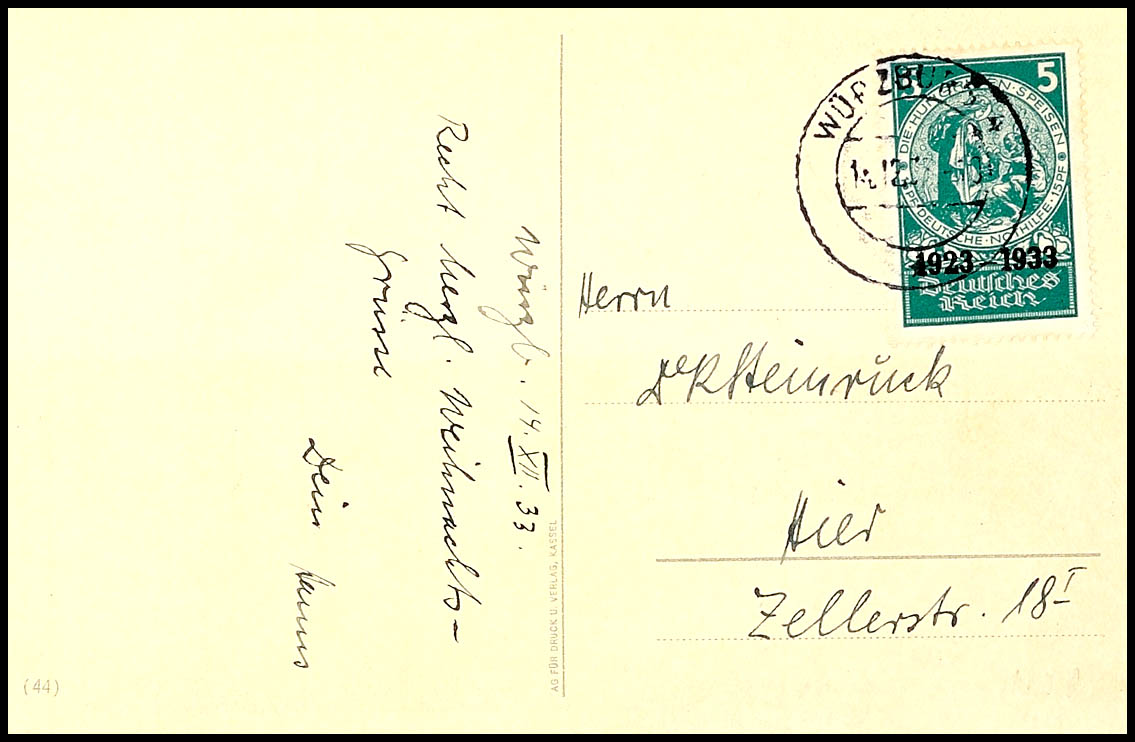 Würzb. 14. XII. 33.
Recht herzl. Weihnachts-
grüsse
Dein Hanns
(44)
AG FÜR DRUCK U. VERLAG, KASSEL
WÜRZBURG
14.12.
5 5
DIE HUNGRIGEN·SPEISEN
PF DEUTSCHE·NOTHILFE·15PF
1923–1933
Deutsches
Reich
Herrn
Dr R Steinrück
Hier
Zellerstr. 18 I